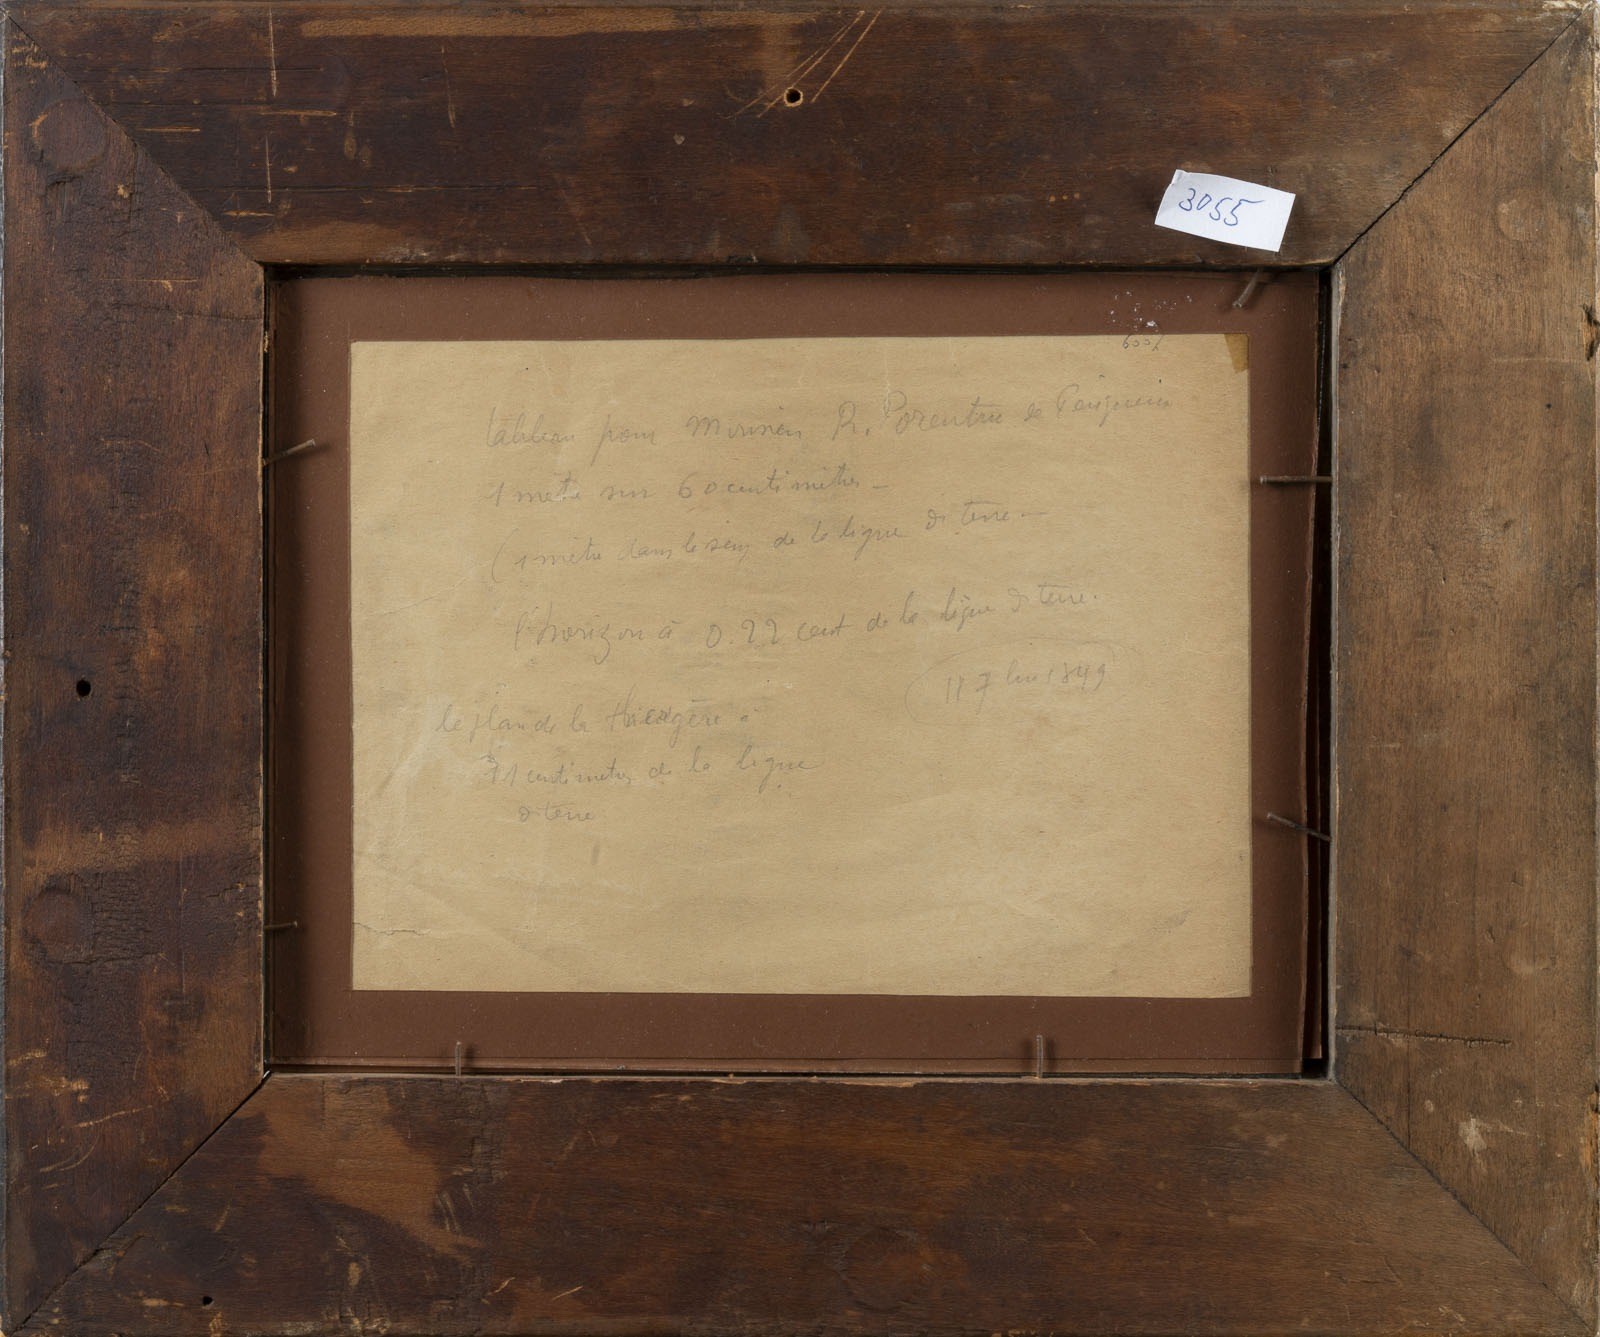 3055
tableau pour Monsieur R.
1 metre sur 60 centimètres -
(1 mètre dans le sens de la ligne de terre -
l'horizon à 0.22 cent de la ligne de terre.
11 7bre 1849
le plan de la à
centimetres de la ligne
de terre